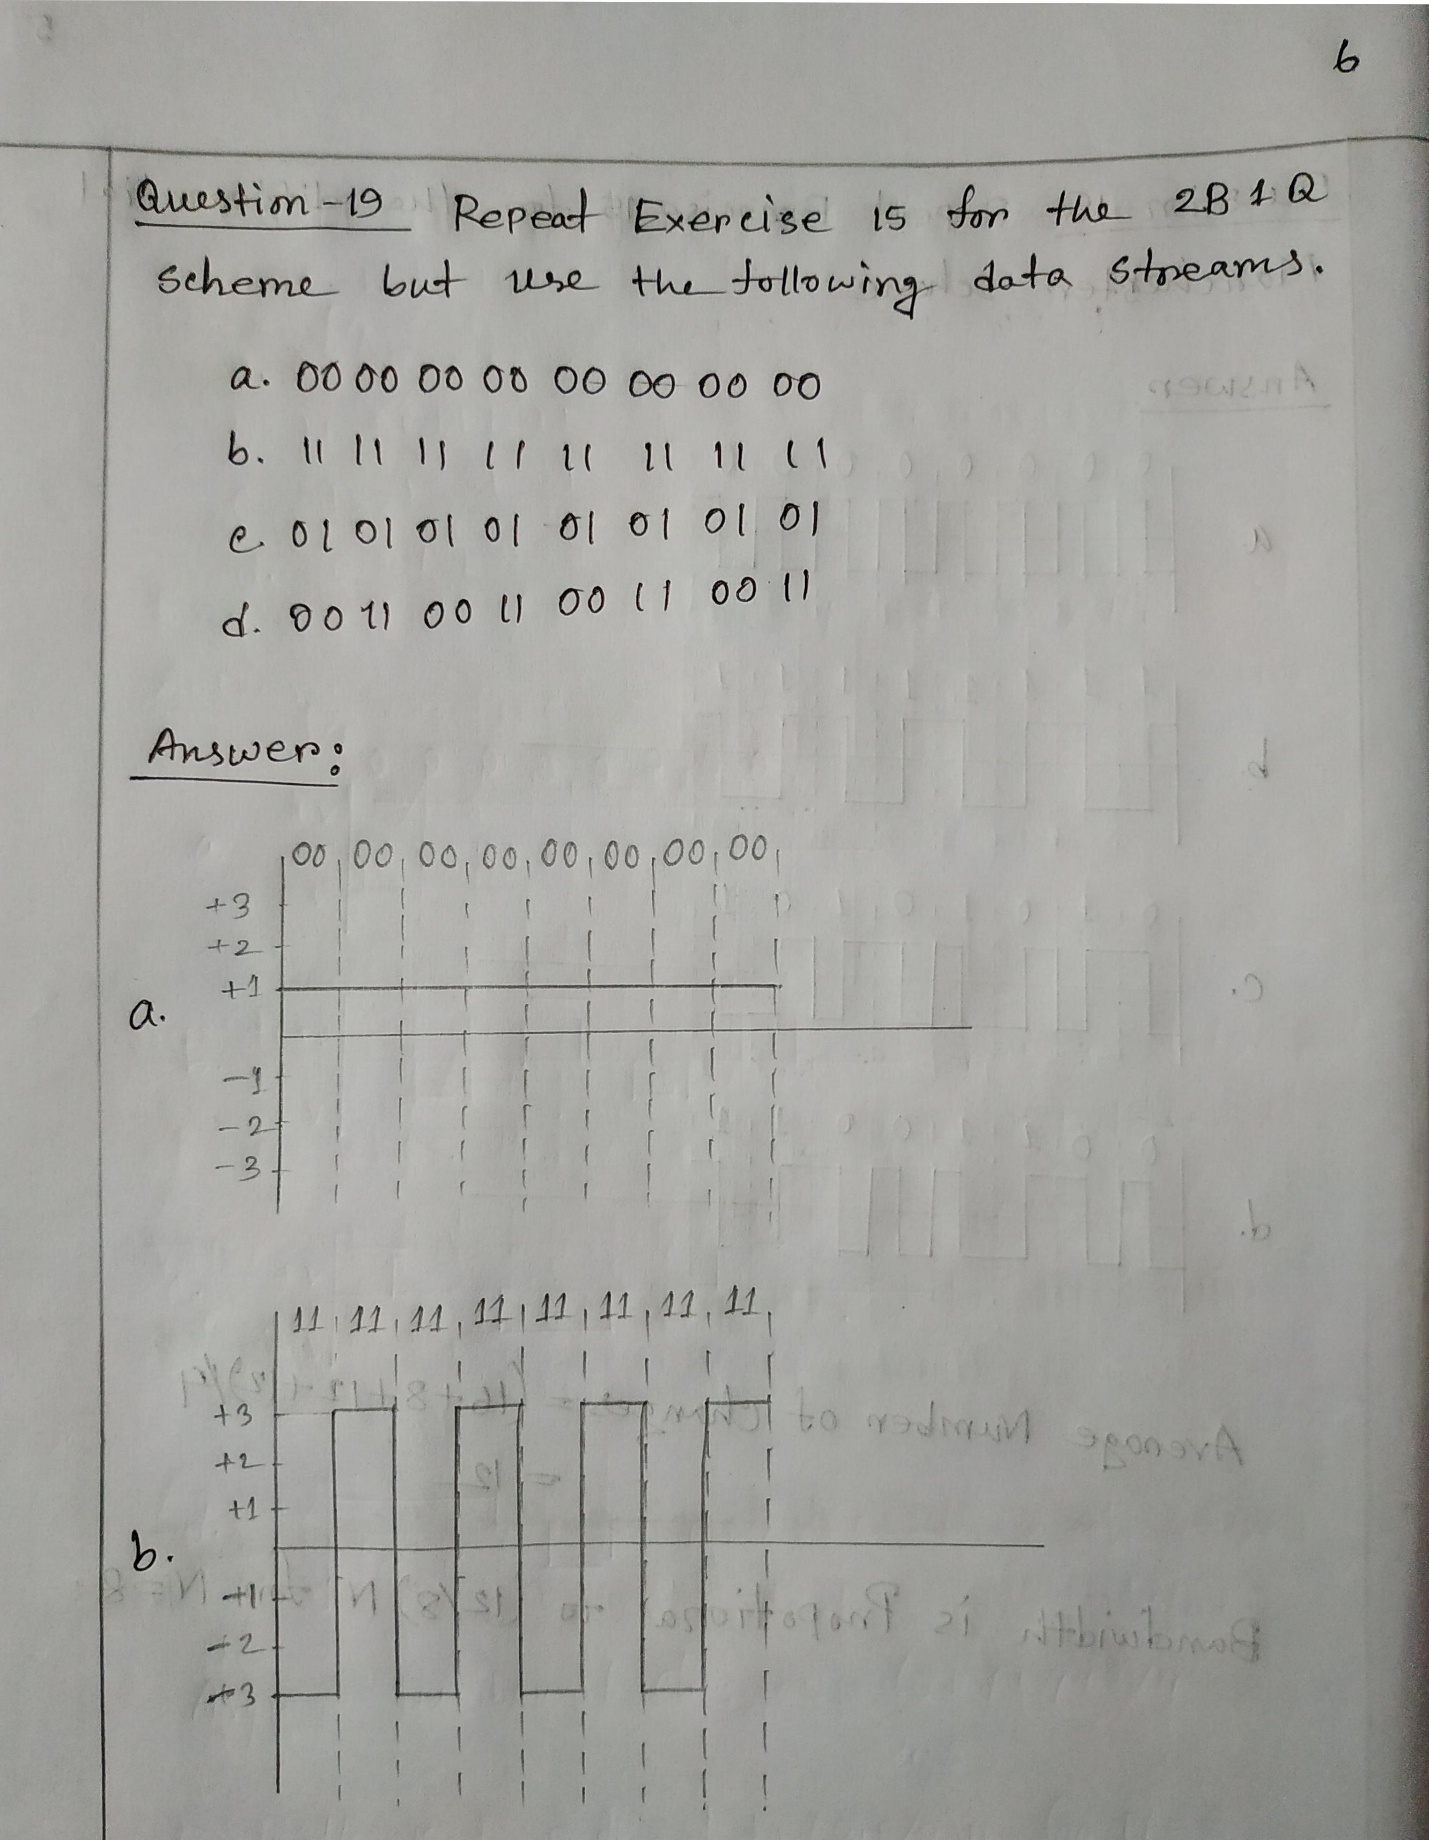 6
Question-19 Repeat Exercise 15 for the 2B1Q
scheme but use the following data streams.
a. 00 00 00 00 00 00 00 00
b. 11 11 11 11 11 11 11 11
c. 01 01 01 01 01 01 01 01
d. 00 11 00 11 00 11 00 11
Answer:
00 00 00 00 00 00 00 00
+3
+2
+1
a.
-1
-2
-3
11 11 11 11 11 11 11 11
+3
+2
+1
b.
-2